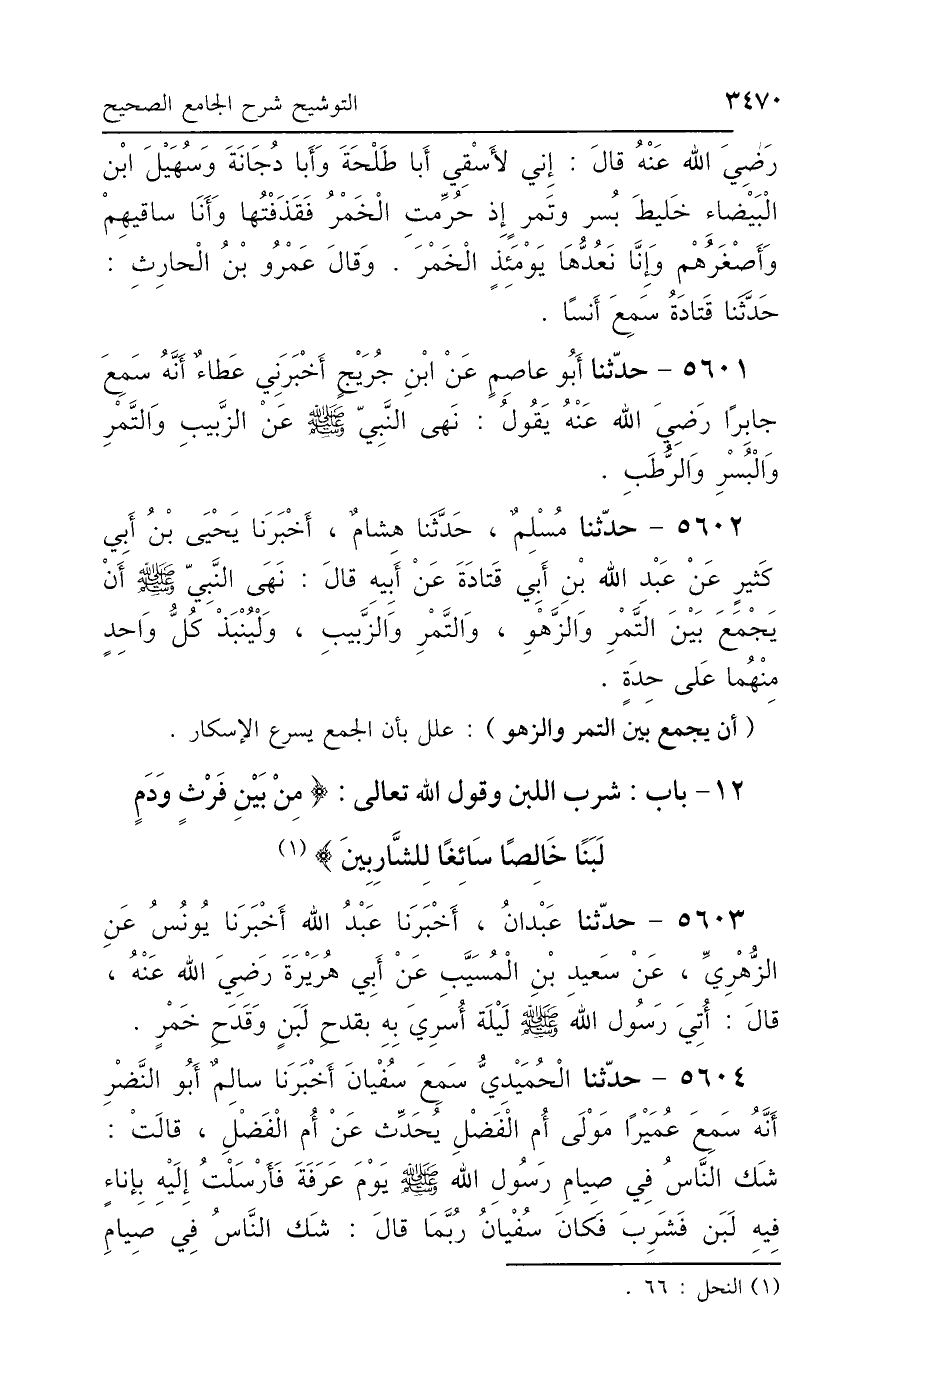 ٣٤٧٠ التوشيح شرح الجامع الصحيح
رَضِيَ الله عَنْهُ قالَ : إني لأَسْقِي أبا طَلْحَةَ وَأَبا دُجَانَةَ وَسُهَيْلَ ابْن
الْبَيْضاءِ خَلِيطَ بُسر وتَمر إِذ حُرِّمتِ الْخَمْرُ فَقَذَفْتُها وَأَنَا ساقيهِمْ
وَأَصْغَرُهُم وَإِنَّا نَعُدُّهَا يَوْمَئذٍ الْخَمْرَ . وَقالَ عَمْرُو بْنُ الْحارِثِ :
حَدَّثَنا قَتادَةُ سَمِعَ أَنسًا .
٥٦٠١ – حدّثنا أَبُو عاصِمٍ عَنْ ابْنِ جُرَيْجٍ أَخْبَرَنِي عَطاءٌ أَنَّهُ سَمِعَ
جابِرًا رَضِيَ الله عَنْهُ يَقُولُ : نَهى النَّبِيّ ﷺ عَنْ الزَّبِيبِ وَالتَّمْرِ
وَالْبُسْرِ وَالرُّطَبِ .
٥٦٠٢ – حدّثنا مُسْلِمٌ ، حَدَّثَنَا هِشامٌ ، أَخْبَرَنَا يَحْيَى بْنُ أَبِي
كَثِيرٍ عَنْ عَبْدِ الله بْنِ أَبِي قَتادَةَ عَنْ أَبِيهِ قالَ : نَهَى النَّبِيّ ﷺ أَنْ
يَجْمَعَ بَيْنَ التَّمْرِ وَالزَّهْوِ ، وَالتَّمْرِ وَالزَّبِيبِ ، وَلْيُنْبَذْ كُلُّ وَاحِدٍ
مِنْهُما عَلى حِدَةٍ .
( أن يجمع بين التمر والزهو ) : علل بأن الجمع يسرع الإسكار .
١٢– باب : شرب اللبن وقول الله تعالى : ﴿ مِنْ بَيْنِ فَرْثٍ وَدَمٍ
لَبَنًا خَالِصًا سَائغًا لِلشَّارِبِينَ ﴾ (١)
٥٦٠٣ – حدّثنا عَبْدانُ ، أَخْبَرَنَا عَبْدُ الله أَخْبَرَنَا يُونُسُ عَنِ
الزُّهْرِيِّ ، عَنْ سَعِيدِ بْنِ الْمُسَيَّبِ عَنْ أَبِي هُرَيْرَةَ رَضِيَ الله عَنْهُ ،
قالَ : أُتِيَ رَسُول الله ﷺ لَيْلَة أُسرِيَ بِهِ بقدحِ لَبَنٍ وَقَدَحِ خَمْرٍ .
٥٦٠٤ – حدّثنا الْحُمَيْدِيُّ سَمِعَ سُفْيانَ أَخْبَرَنَا سالِمٌ أَبُو النَّضْرِ
أَنَّهُ سَمِعَ عُمَيْرًا مَوْلَى أُم الْفَضْلِ يُحَدِّث عَنْ أُم الْفَضْلِ ، قالَتْ :
شَك النَّاسُ فِي صيامِ رَسُولِ الله ﷺ يَوْمَ عَرَفَةَ فَأَرْسَلْتُ إِلَيْهِ بِإِناءٍ
فِيهِ لَبَن فَشَرِبَ فَكانَ سُفْيانُ رُبَّمَا قالَ : شَك النَّاسُ فِي صِيامِ
(١) النحل : ٦٦ .